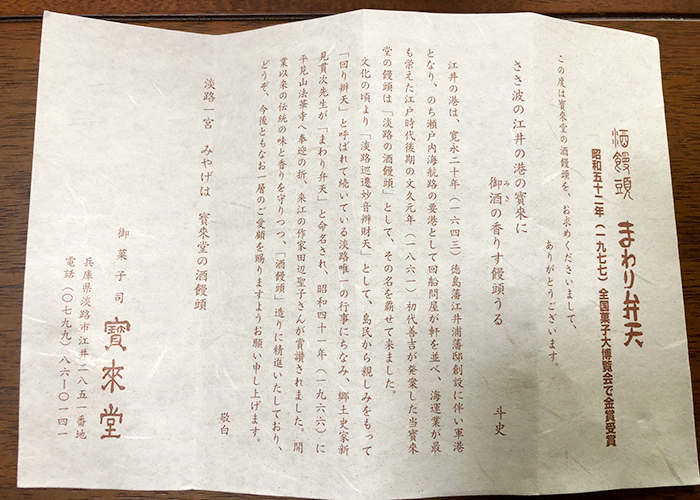 酒饅頭 まわり弁天
昭和五十二年(一九七七)全国菓子大博覧会で金賞受賞
この度は寶來堂の酒饅頭を、お求めくださいまして、
ありがとうございます。
ささ波の江井の港の寶來に
御酒の香りす饅頭うる
みき
斗史
江井の港は、寛永二十年(一六四三)徳島藩江井浦藩邸創設に伴い軍港
となり、のち瀬戸内海航路の要港として回船問屋が軒を並べ、海運業が最
も栄えた江戸時代後期の文久元年(一八六一)初代善吉が発業した当寶來
堂の饅頭は「淡路の酒饅頭」として、その名を覇せて来ました。
文化の頃より「淡路巡遷妙音辨財天」として、島民から親しみをもって
「回り辨天」と呼ばれて続いている淡路唯一の行事にちなみ、郷土史家新
見貫次先生が「まわり弁天」と命名され、昭和四十一年(一九六六)に
平見山法華寺へ奉迎の折、来江の作家田辺聖子さんが賞讃されました。開
業以来の伝統の味と香りを守りつつ、「酒饅頭」造りに精進いたしており、
どうぞ、今後ともなお一層のご愛顧を賜りますようお願い申し上げます。
敬白
淡路一宮 みやげは 寶來堂の酒饅頭
御菓子司 寶來堂
兵庫県淡路市江井二八五一番地
電話(〇七九九)八六-〇一四一